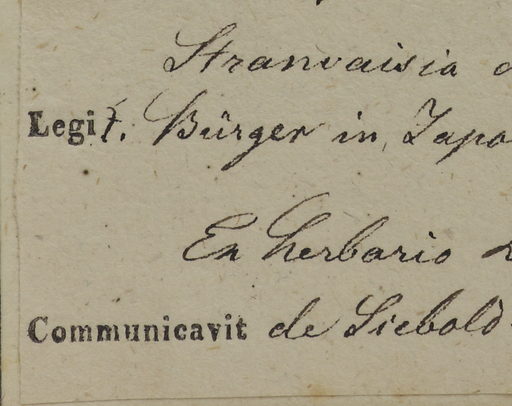 Stranvaisia
Legit. Bürger in Japo
Ex herbario
Communicavit de Siebold